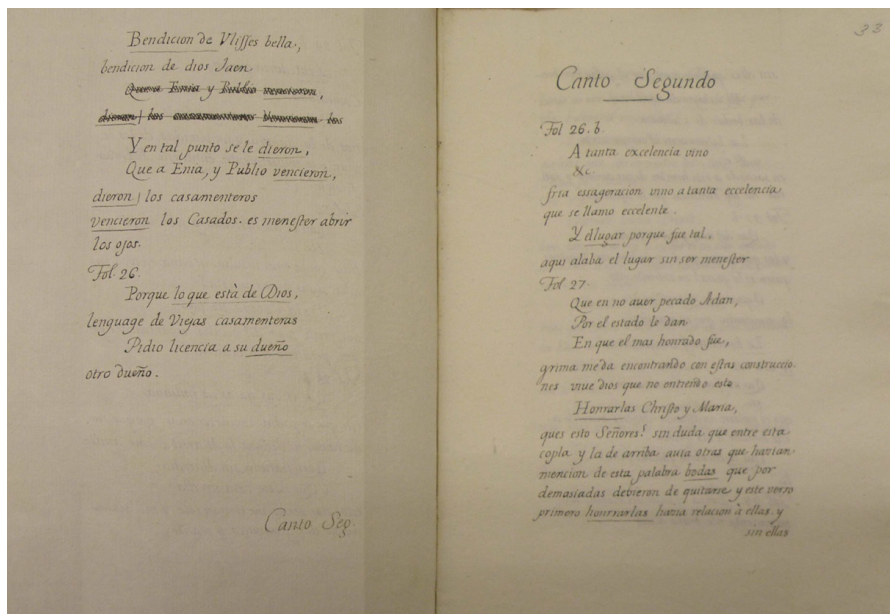 Bendicion de Ulisses bella,
bendicion de dios Jaen.
Que a Enia y Publio vencieron,
dieron) los casamenteros Vencieron. los
Y en tal punto se le dieron,
Que a Enia, y Publio vencieron,
dieron) los casamenteros
vencieron los Casados. es menester abrir
los ojos.
Fol. 26.
Porque lo que està de Dios,
lenguage de Viejas casamenteras
Pidio licencia a su dueño
otro dueño.
Canto Seg.
33
Canto Segundo
Fol 26. b.
A tanta excelencia vino
&c.
fria essageracion vino a tanta eccelencia
que se llamo eccelente.
Y dlugar porque fue tal,
aqui alaba el lugar sin ser menester
Fol 27.
Que en no auer pecado Adan,
Por el estado le dan
En que el mas honrado fue,
grima me da encontrando con estas construccio-
nes viue dios que no entiendo esto.
Honrarlas Christo y Maria,
ques esto Señores? sin duda que entre esta
copla y la de arriba auia otras que hauian
mencion de esta palabra bodas que por
demasiadas debieron de quitarse y este verso
primero honrrarlas hauia relacion à ellas y
sin ellas